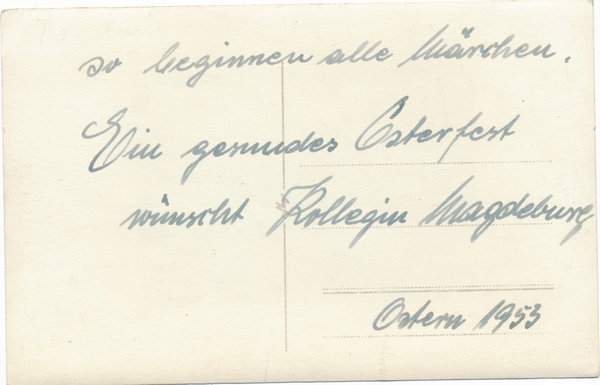 so beginnen alle Märchen.
Ein gesundes Osterfest
wünscht Kollegin Magdeburg
Ostern 1953